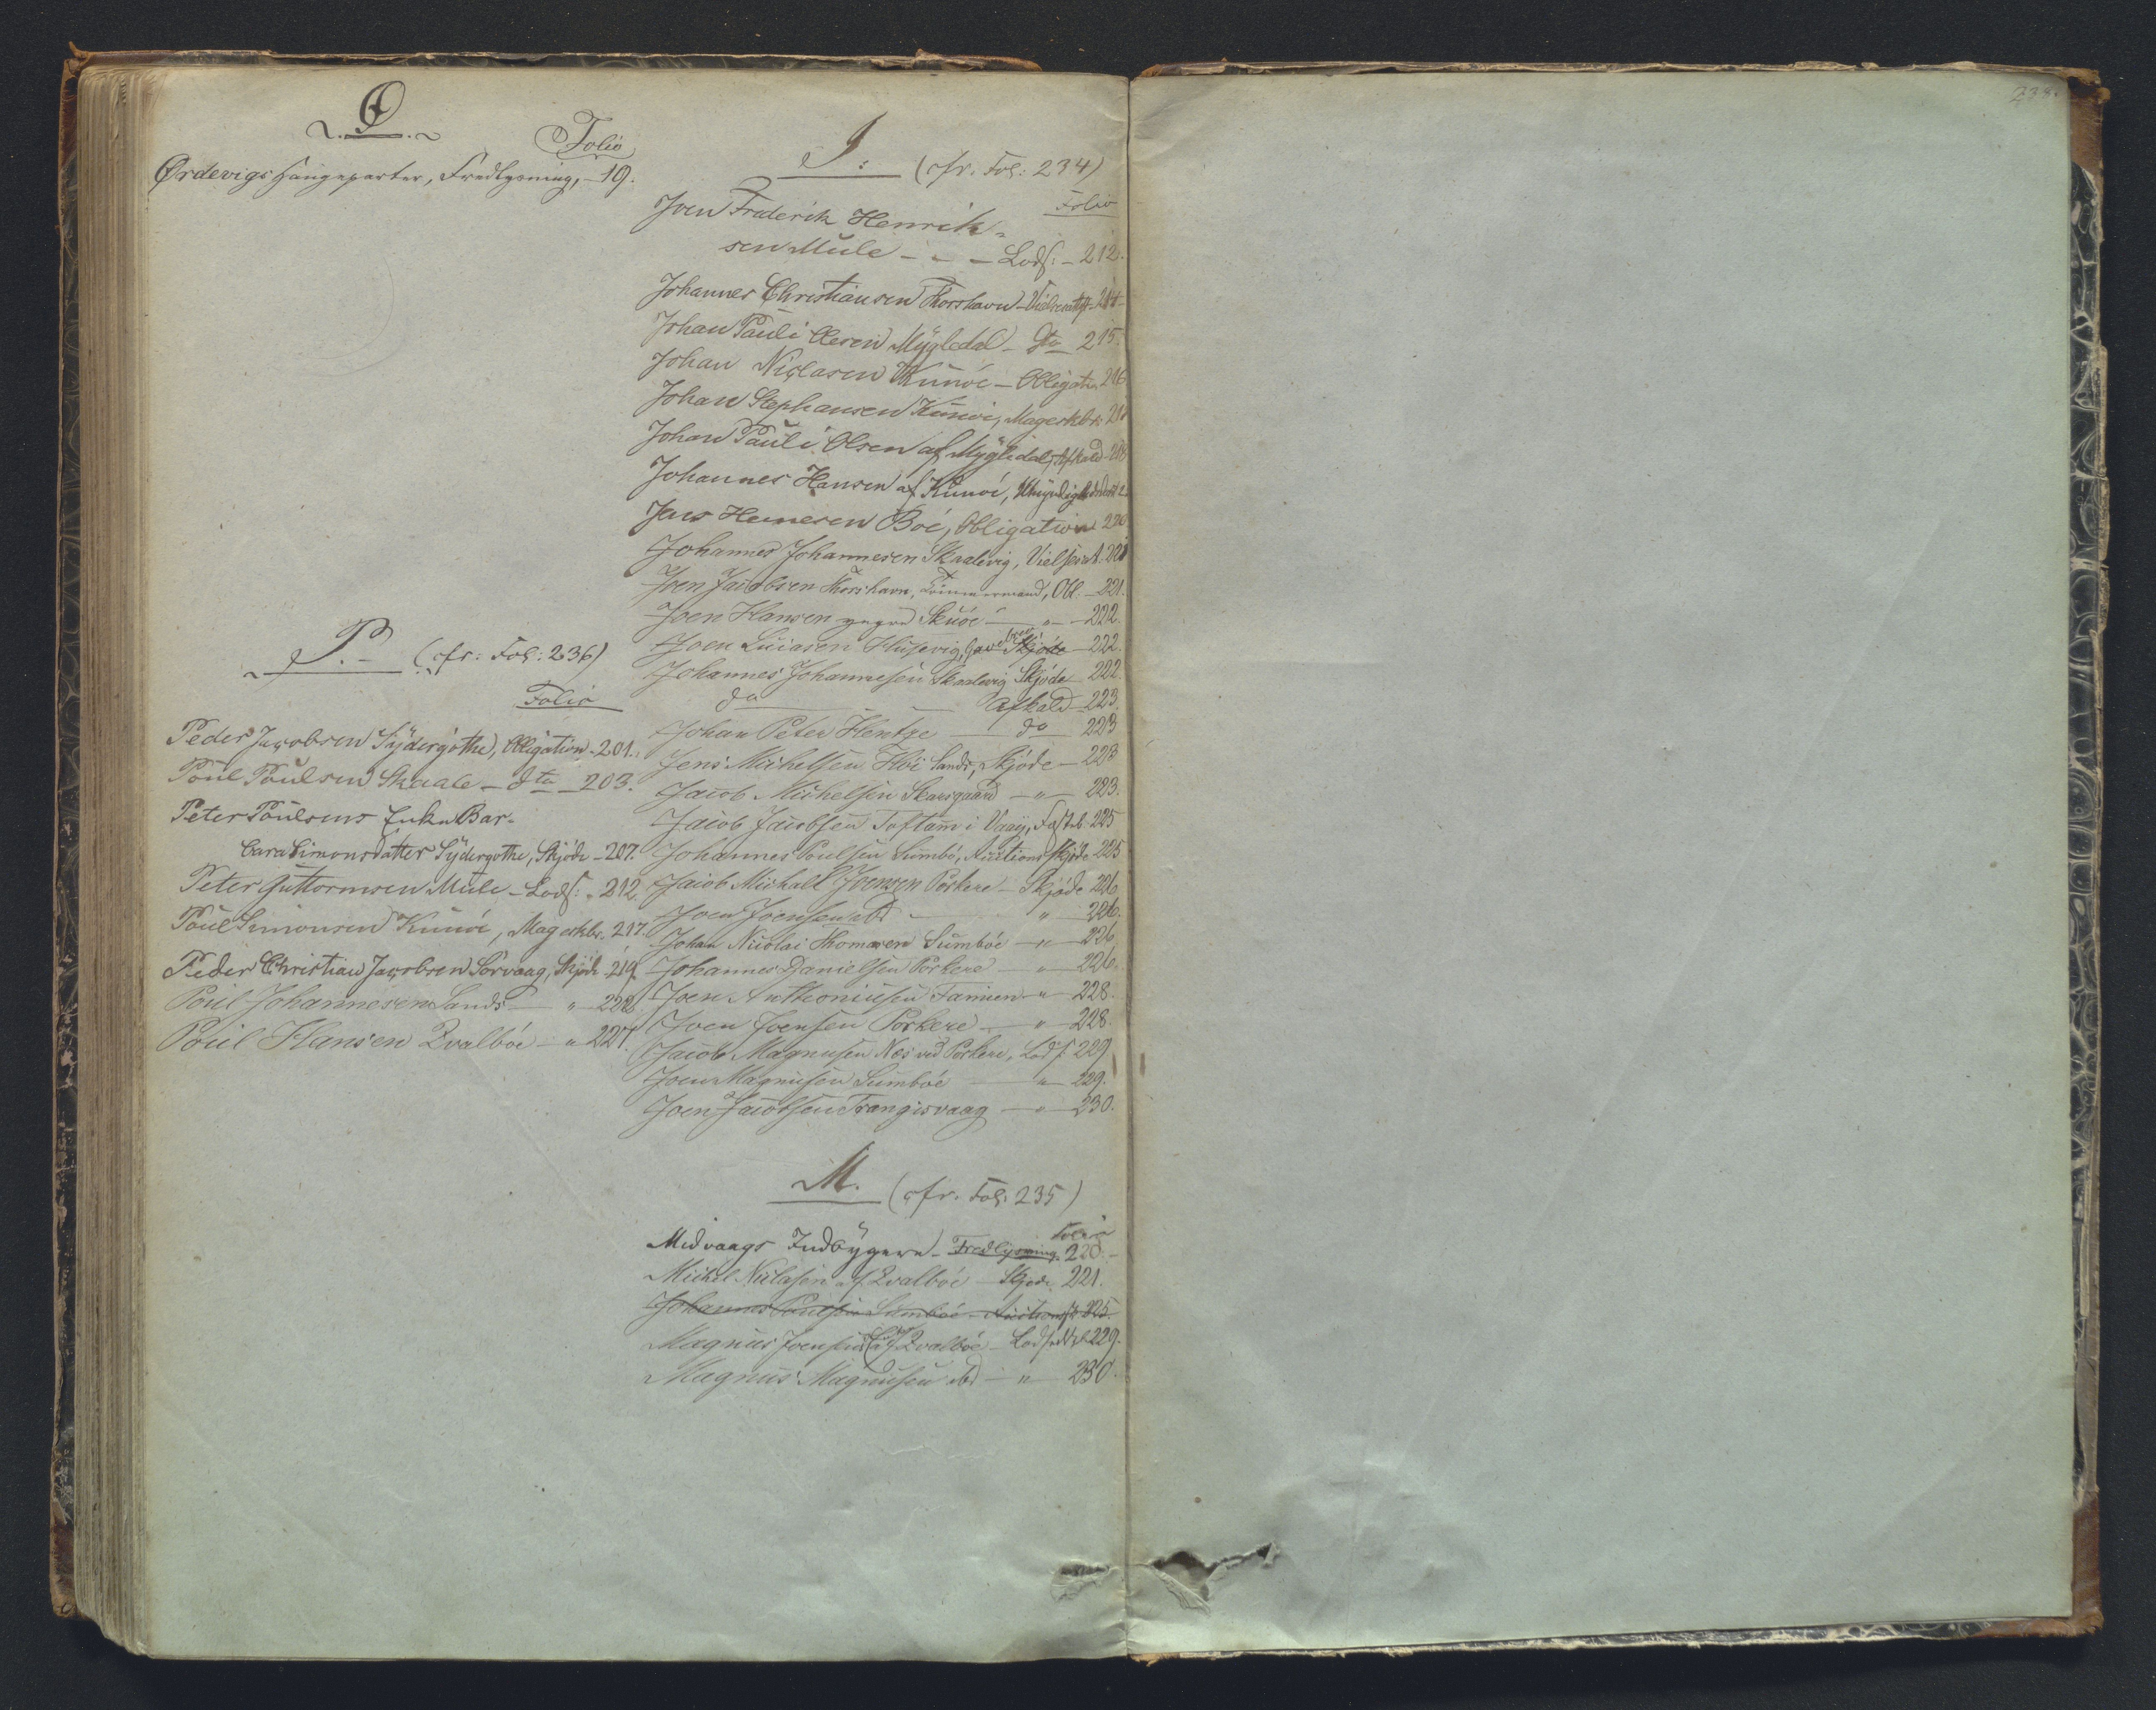 Ø.
Folio
Ørdevigs Haugeparter, Fredlysning, - 19.
P. - (cfr. Fol: 236)
Folio
Peder Jacobsen Sydergøthe, Obligation - 201.
Poul Poulsen Skaale - dto - 203.
Peter Poulsens Enke Bar-
bara Simonsdatter Sydergøthe, Skjøde - 207.
Peter Guttormsen Mule - Lods: - 212.
Poul Simonsen Kunøe, Mageskbr. 217.
Peder Christian Jacobsen Sørvaag, Skjøde 219.
Poul Johannesen Sands - " - 222.
Poul Hansen Qvalbøe - " 227.
I: (cfr. Fol: 234)
Folio
Joen Frederik Henrik-
sen Mule - - - Lods: - 212.
Johannes Christiansen Thorshavn - 214
Johan Pauli Olesen Mygledal - Dto - 215.
Johan Niclasen Kunøe - Obligatn. 216
Johan Stephansen Kunøe, Mageskbr. 217
Johan Pauli Olsen af Myglidal, Afkald - 218
Johannes Hansen af Kunøe,
Jens Hemesen Bøe, Obligation 220
Johannes Johannesen Skaalevig, Vielsesat. 220
Joen Jacobsen Thorshavn, Tømmermand, Obl. - 221.
Joen Hansen yngre Skuøe - " - 222.
Joen Lucasen Husevig, Gavebrev Skjøde - 222.
Johannes Johannesen Skaalevig Skjøde 222.
do - - Afkald - 223.
Johan Peter Hentze do 223
Jens Michelsen Høi Sands, Skjøde - 223
Jacob Michelsen Skarsgaard - " - 223.
Jacob Jacobsen Toftum i Vaag, Fæsteb. 225
Johannes Poulsen Sumbø, Auctions Skjøde 225
Jacob Michall Joensen Porkere - Skjøde 226
Joen Joensen ibd - " - 226.
Johan Nicolai Thomasen Sumbøe - " - 226
Johannes Danielsen Porkere - " - 226.
Joen Anthoniusen Famien - " - 228.
Joen Joensen Porkere - " - 228.
Jacob Magnusen Nes ved Porkere, Lods. 229
Joen Magnusen Sumbøe - " - 229.
Joen Jacobsen Trangisvaag - " - 230.
M. (cfr. Fol: 235)
Folio
Midvaags Indbyggere - Fredlysning. 220. -
Michel Niclasen af Qvalbøe - Skjøde 221.
Johannes Poulsen Sumbøe - Auctionssk. 225.
Magnus Joensen af Qvalbøe - 229.
Magnus Magnusen ibd - " - 230.
238.